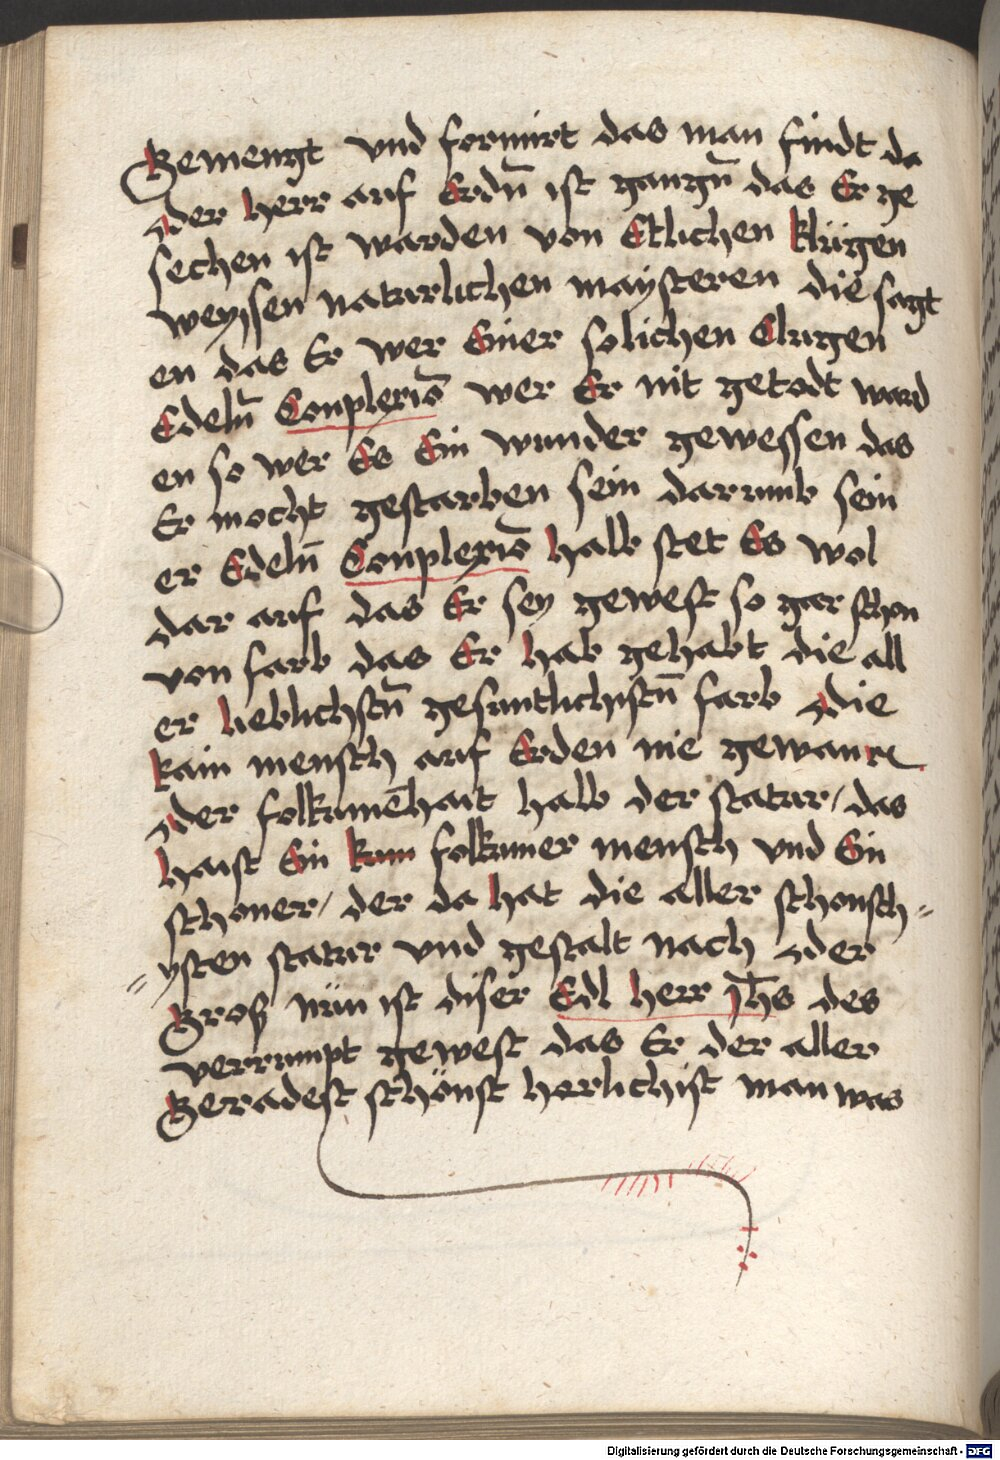 Gemengt vnd formirt das man findt da
der herr auf Erdn̄ ist gangn̄ das Er ge
sechen ist warden von Etlichen klŭgen
weysen naturlichen maysteren die sagt
en das Er wer Einer solichen Clugen
Edeln̄ Conplexiō wer Er nit getodt ward
en so wer Es Ein wunder gewessen das
Er mocht gestarben sein darumb sein
er Edeln̄ Conplexiō halb stet Es wol
dar auf das Er sey gewest so gar schon
von farb das Er hab gehabt die all
er lieblichstn̄ gesuntlichistn̄ farb die
kain mensch auf Erden nie gewan
der folkumēhait halb der statur / das
haist Ein kam folkumer mensch vnd Ein
schoner / der da hat die aller schonsch=
=ysten statur vnd gestalt nach der
Groß nŭn ist diser Edl herr Jh̄s des
verrumpt gewest das Er der aller
Geradest schönst herlichist man was
Digitalisierung gefördert durch die Deutsche Forschungsgemeinschaft - DFG